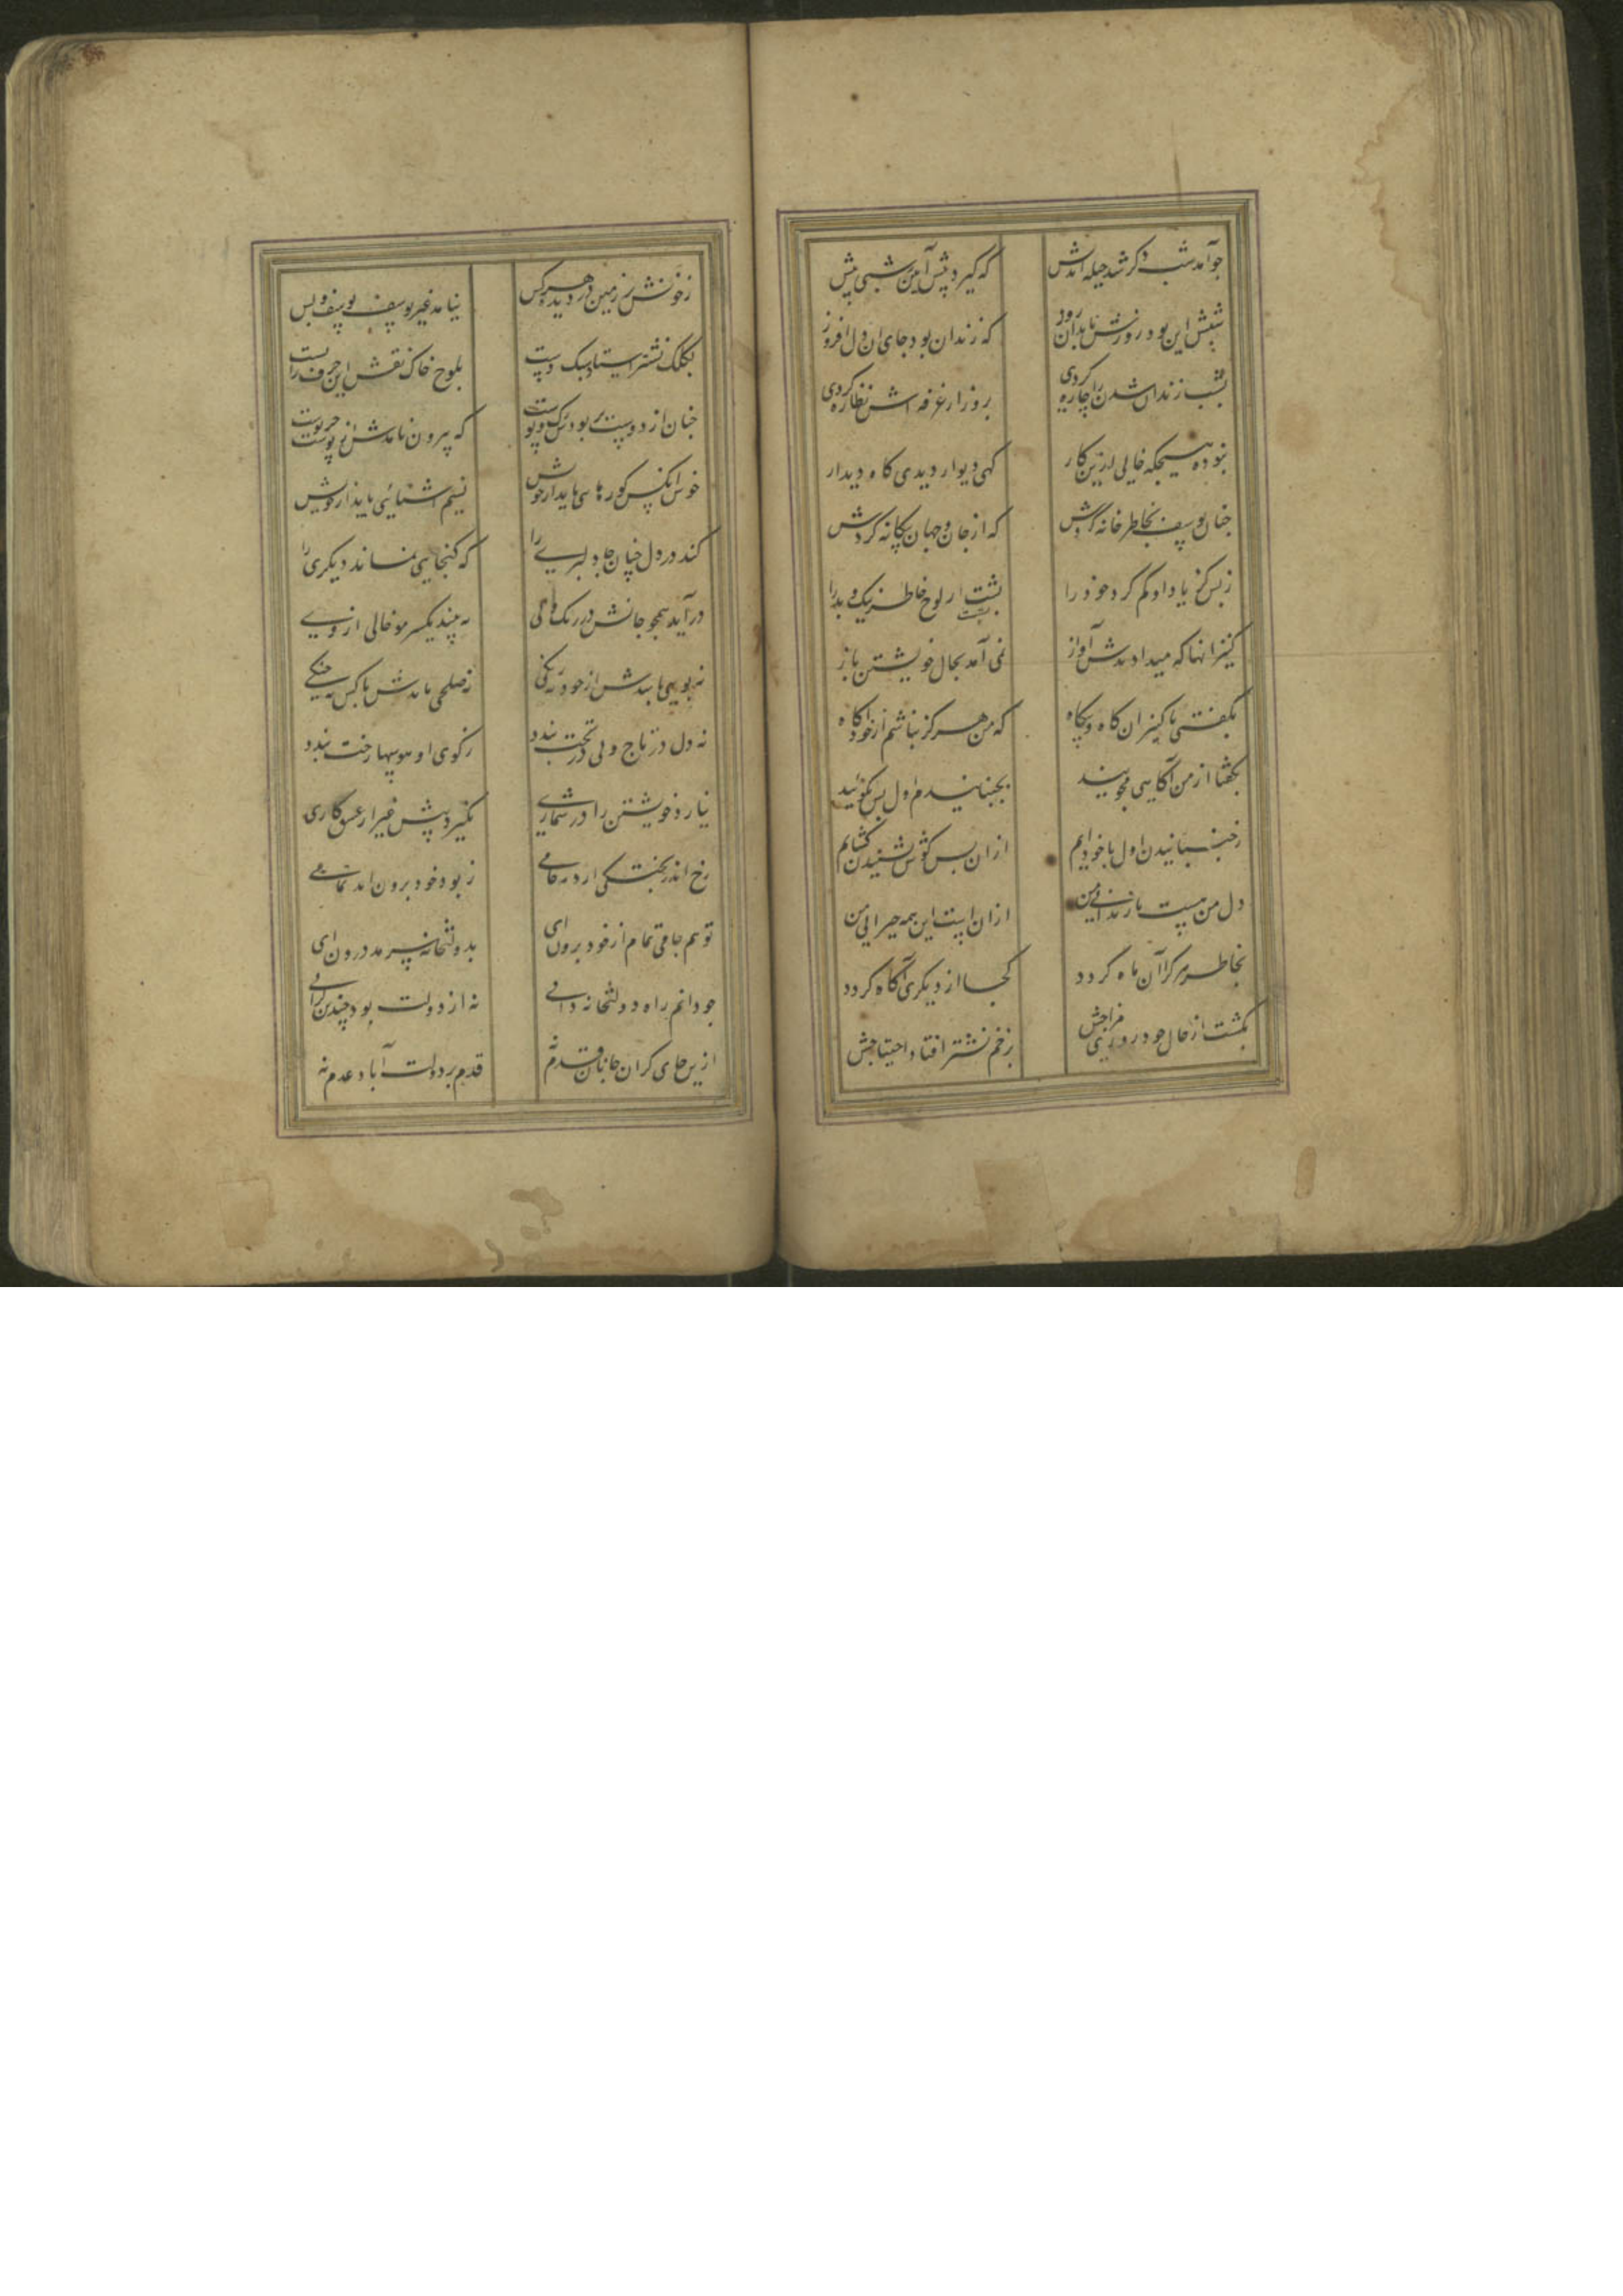 جو آمد شب دکر شد حیله اندش
که گیرد پیش آیین شبی پیش
شبش این بود و روزش تابدان روز
که زندان بود جای ان دل افروز
بشب زندان شدن را چاره کردی
بروز از غرفه اش نظاره کردی
نبوده هیچکه خالی ازین کار
کهی دیوار دیدی کاه دیدار
جنان یوسف بخاطر خانه کردش
که از جان و جهان بیکانه کردش
زبس کز یاد او کم کرد خود را
بشست از لوح خاطر نیک و بد را
کنیزانها که میدادندش آواز
نمی آمد بحال خویشتن باز
بکفتی با کنیزان کاه و بیکاه
که من هرکز نباشم از خود آکاه
بکفتا از من آکاهی مجویید
بجنبانیدم اول پس بکوئید
ز جنبانیدن اول با خود آیم
ازان پس کوش شنیدن کشایم
دل من هست با زندانی من
ازان است این همه حیرانی من
بخاطر هر کرا آن ماه کردد
کجا از دیکری آکاه کردد
بکشت از حال خود روزی مزاجش
بزخم نشتر افتاد احتیاجش
زخونش بر زمین در دیده هر کس
نیامد غیر یوسف یوسف و بس
بکلک نشتر استاد سبک دست
بلوح خاک نقش این حرف را بست
جنان از دوست پر بودش رک و پوست
که بیرون نامدش از پوست جز دوست
خوش آنکس کو رهایی یابد از خویش
نسیم اشنائی یابد از خویش
کند در دل جنان جا دلبری را
که کنجایی نماند دیکری را
درآید همچو جانش در رک و پی
نه بیند یکسر مو خالی از وی
نه بویی باشدش از خود نه رنکی
نه صلحی باشدش با کس نه جنکی
نه دل در تاج و نی در تخت بندد
ز کوی او هوسها رخت بندد
نیارد خویشتن را در شماری
نکیرد پیش غیر از عشق کاری
رخ اندر بختکی ارد ز خامی
ز بود خود برون اید تمامی
تو هم جامی تمام از خود برون ای
بدولتخانه سرمد درون ای
جو دانم راه دولتخانه دانی
نه از دولت بود چندین کرانی
ازین جای کران جانان قدم نه
قدم بر دولت آباد عدم نه